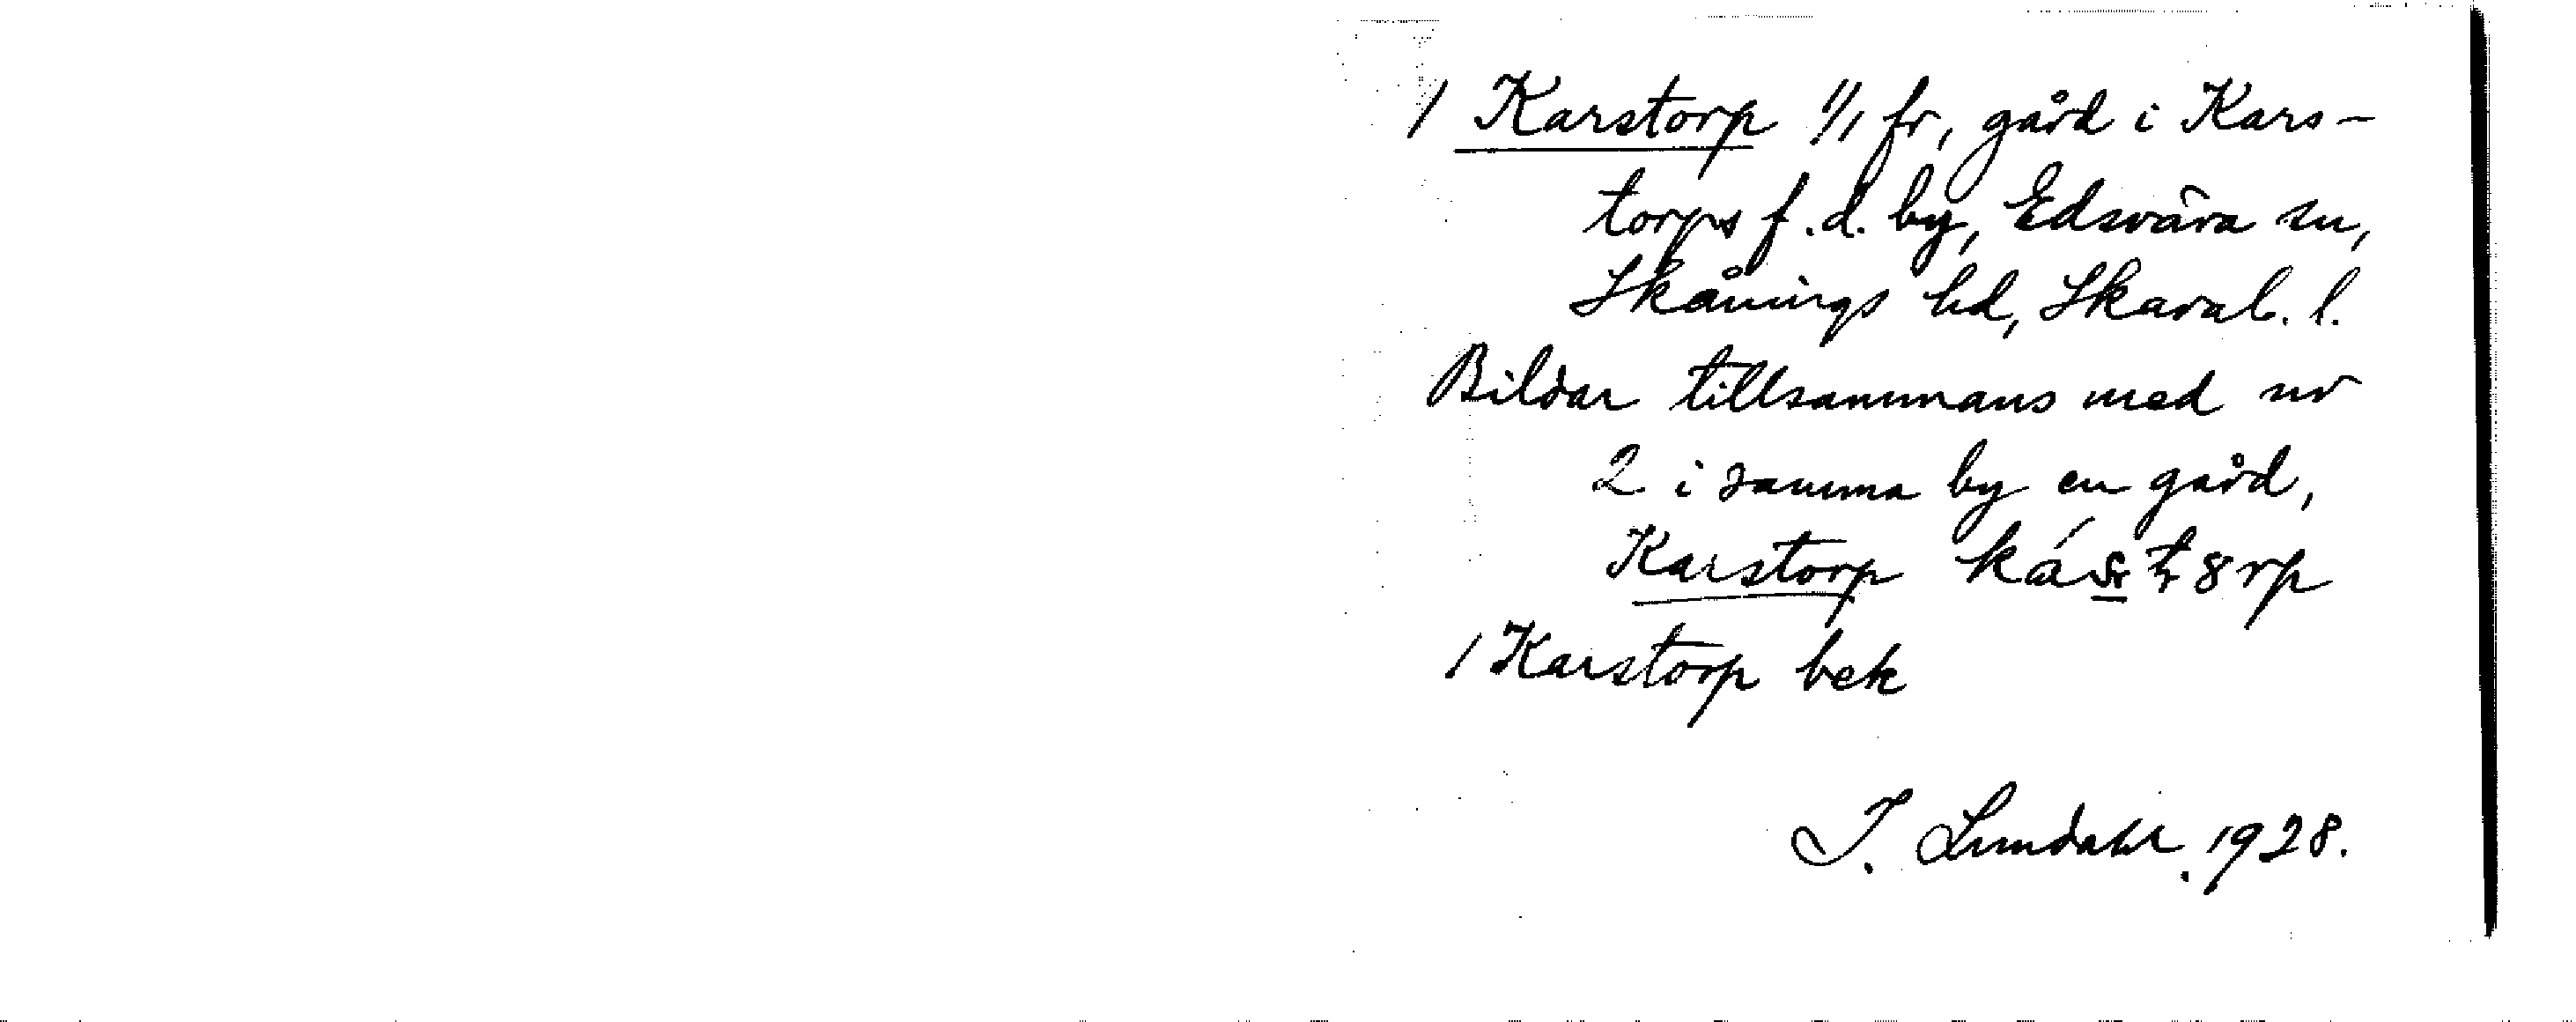 1 Karstorp 1/1 fr, gård i Kars-
torps f.d. by, Edsvära sn,
Skånings hd, Skarab. l.
Bildar tillsammans med nr
2 i samma by en gård,
Karstorp
1 Karstorp bek
I. Lundahl. 1928.